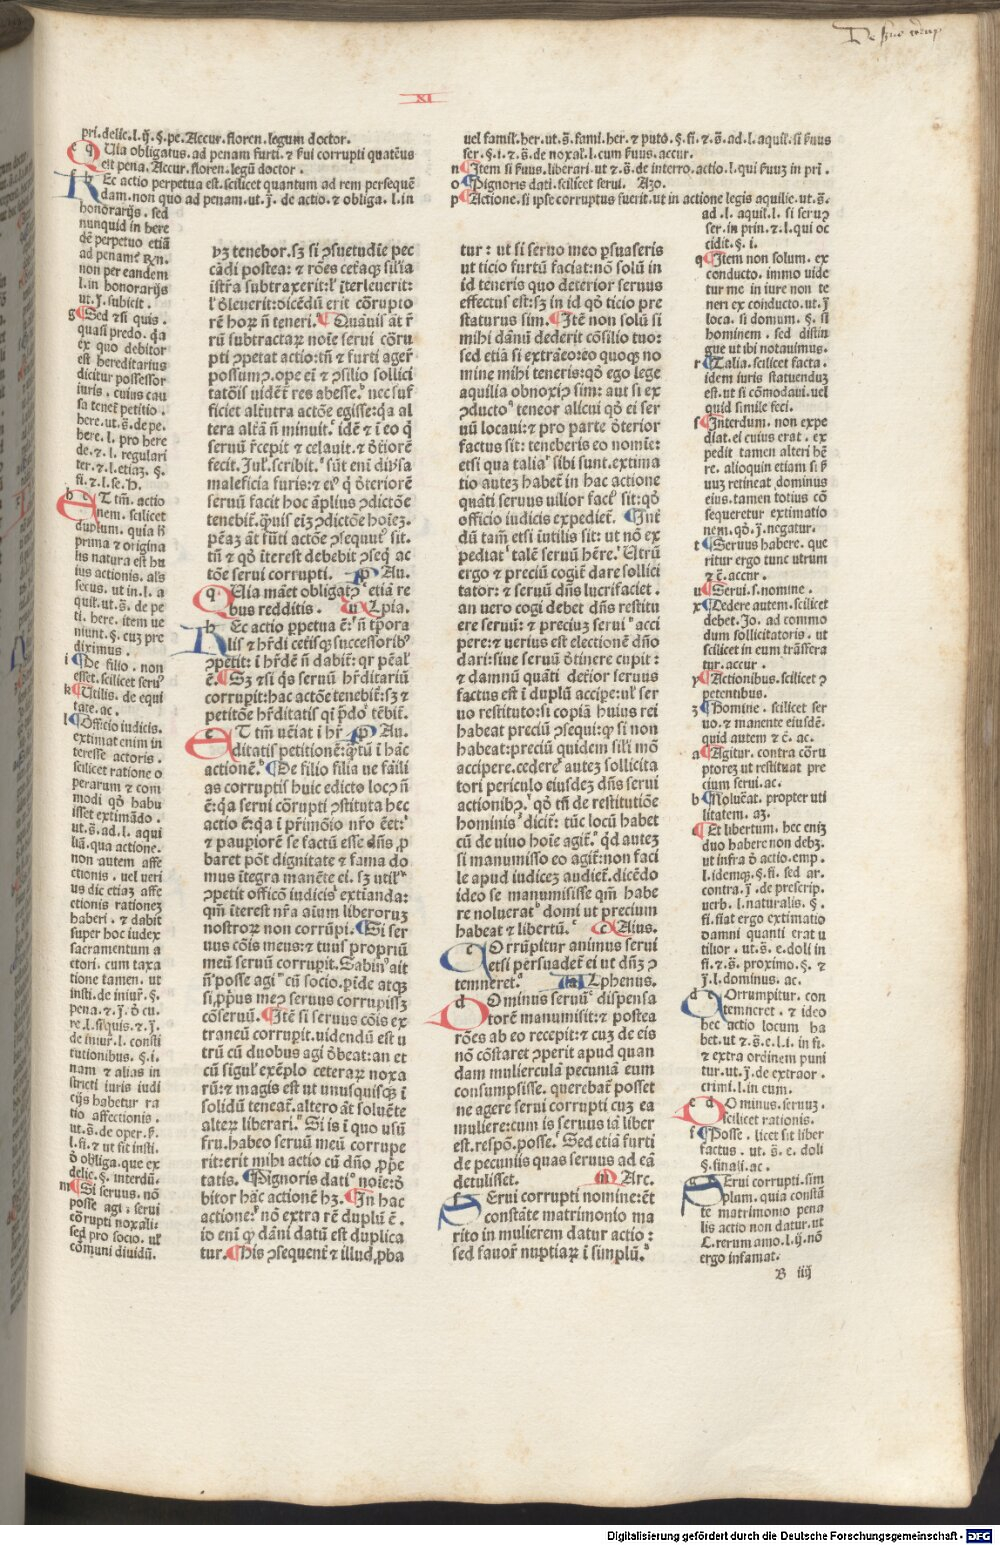 De seruo corrup.
XI
pri.delic.l.ij.§.pe.Accur.floren.legum doctor.
Uia obligatus.ad penam furti.⁊ ẜui corrupti quatēus
est pena.Accur.floren.legū doctor.
Ec actio perpetua est.scilicet quantum ad rem persequē
dam.non quo ad penam.ut.j̄. de actio.⁊ obliga.l.in
honorarijs.sed
nunquid in here
dē perpetuo etiā
non per eandem
l.in honorarijs
ut.j̄.subicit.
Sed ⁊ si quis.
quasi predo.q̄a
ex quo debitor
est hereditarius
dicitur possessor
iuris.cuius cau
sa tenet petitio.
here.ut.s̄.de pe.
here.l.pro here
de.⁊.l.regulari
ter.⁊.l.etiaꝫ.§.
T tm̄.actio
nem.scilicet
duplum.quia h̄
prima ⁊ origina
lis natura est hu
ius actionis.al's
secus.ut in.l.a
quil.ut.s̄.de pe
ti.here.item ue
niunt.§.cuꝫ pre
diximus.
De filio.non
esset.scilicet seruꝰ
Utilis.de equi
tate.ac.
Officio iudicis.
extimat enim in
teresse actoris.
scilicet ratione o
perarum ⁊ com
modi qd̓ habu
isset extimādo.
ut.s̄.ad.l.aqui
liā.qua actione.
non autem affe
ctionis.uel ueri
us dic etiaꝫ affe
ctionis rationeꝫ
haberi.⁊ dabit
super hoc iudex
sacramentum a
ctori.cum taxa
tione tamen.ut
insti.de iniur̄.§.
pena.⁊.j̄.d̓ cu.
re.l.siquis.⁊.j̄.
de iniur̄.l.consti
tutionibus.§.i.
nam ⁊ alias in
stricti iuris iudi
cijs habetur ra
tio affectionis.
ut.s̄.de oper.ẜ.
l.fi.⁊ ut fit insti.
d̓ obliga.que ex
delic.§.interdū.
Si seruus.nō
posse agi.serui
cōrupti noxali:
sed pro socio.ul̓
cōmuni diuidū.
ꝑꝫ tenebor.sꝫ si ꝯsuetudīe pec
cādi postea:⁊ rōes ceteraqꝫ silīa
īstrā subtraxerit:l' īterleuerit:
l' d̓leuerit:dicēdū erit cōrupto
rē hoꝝ n̄ teneri. Quāuis āt r̄
rū subtractaꝝ noīe serui cōru
pti ꝯpetat actio:tn̄ ⁊ furti ager̄
possumꝰ.ope eī ⁊ ꝯsilio sollici
tatōis uider̄t res abesse. nec suf
ficiet alt̄utra actōe egisse:q̄a al
tera altr̄ā n̄ minuit. idē ⁊ ī eo q̄
seruū r̄cepit ⁊ celauit.⁊ dt̓iorē
fecit.Jul'.scribit. sūt enī diu̓sa
maleficia furis:⁊ eiꝰ q̄ dt̓eriorē
seruū facit hoc āplius ꝯdictōe
tenebit̄.q̄uis eiꝫ ꝯdictōe hoīeꝫ.
pēaꝫ āt fūti actōe ꝯsequut̄ sit.
tn̄ ⁊ qd̓ īterest debebit ꝯseq̄ ac
tōe serui corrupti. P Au.
Uia māet obligatꝰ etiā re
bus redditis. U Lpia.
Ec actio ꝑpetua ē:n̄ tp̄ora
lis ⁊ hr̄di cetisqꝫ successoribꝰ
ꝯpetit:ī hr̄dē n̄ dabit̄:qr pēal'
ē. Sꝫ ⁊ si q̄s seruū hr̄ditariū
corrupit:hac actōe tenebit̄:sꝫ ⁊
petitōe hr̄ditatis qī p̄do tēbit̄.
T tm̄ uēiat ī hr̄ P Au.
ditatis petitionē:q̄tū ī hāc
actionē. De filio filia ue fāili
as corruptis huic edicto locꝰ n̄
ē:q̄a serui cōrupti ꝯstituta hec
actio ē:q̄a ī pr̄imōio nr̄o ēet:
⁊ paupiorē se factū esse dn̄s ꝓ
baret pōt dignitate ⁊ fama do
mus ītegra manēte ei. sꝫ utilꝰ
ꝯpetit officō iudicis extīanda:
qm̄ īterest nr̄a aīum liberoruꝫ
nostroꝝ non corrūpi. Si ser
uus cōis meus:⁊ tuus propriū
meū seruū corrupit.Sabinꝰ ait
n̄ posse agi cū socio.pīde atqꝫ
si,ꝓpus meꝰ seruus corrupissꝫ
cōseruū. Itē si seruus cōis ex
traneū corrupit.uidendū est u
trū cū duobus agi d̓beat:an et
cū sigul' exēplo ceteraꝝ noxa
rū:⁊ magis est ut unusquisqꝫ ī
solidū teneat̄.altero āt soluēte
alteꝝ liberari. Si is ī quo usū
fru.habeo seruū meū corrupe
rit:erit mihi actio cū dn̄o ꝓp̄e
tatis. Pignoris dati noīe:d̓
bitor hāc actionē hꝫ. In hac
actione:nō extra rē duplū ē.
io enī q̄ dāni datū est duplica
tur. His ꝯsequenī ⁊ illud,ꝓba
uel famil'.her.ut.s̄.fami.her.⁊ puto.§.fi.⁊.s̄.ad.l.aquil.si ẜuus
ser.§.i.⁊.s̄.de noxal.l.cum ẜuus.accur.
Item si ẜuus.liberari.ut ⁊.s̄.de interro.actio.l.qui ẜuuꝫ in pri.
Pignoris dati.scilicet serui. Azo.
Actione.si ipse corruptus fuerit.ut in actione legis aquilie.ut.s̄.
ad.l.aquil.l.si seruꝰ
ser.in prin.⁊.l.qui oc
cidit.§.i.
tur:ut si seruo meo ꝑsuaseris
ut ticio furtū faciat:nō solū in
id teneris quo deterior seruus
effectus est:sꝫ in id qd̓ ticio pre
staturus sim. Itē non solū si
mihi dānū dederit cōsilio tuo:
sed etiā si extrāeo:eo quoqꝫ no
mine mihi teneris:qd̓ ego lege
aquilia obnoxiꝰ sim:aut si ex
ꝯducto teneor alicui qd̓ ei ser
uū locaui:⁊ pro parte dt̓erior
factus sit:teneberis eo nomīe:
etsi qua talia sibi sunt.extima
tio autez habet̄ in hac actione
quāti seruus uilior facꝰ sit:qd̓
officio iudicis expediet̄. Int̄
dū tam̄ etsi intilis sit:ut nō ex
pediat talē seruū hr̄e.Utrū
ergo ⁊ preciū cogit̄ dare sollici
tator:⁊ seruū dn̄s lucrifaciet.
an uero cogi debet dn̄s restitu
ere seruū:⁊ preciuꝫ serui acci
pere:⁊ uerius est electionē dn̄o
dari:siue seruū dt̓inere cupit:
⁊ damnū quāti det̓ior seruus
factus est ī duplū accipe:ul̓ ser
uo restituto:si copiā huius rei
habeat preciū ꝯsequi:qꝫ si non
habeat:preciū quidem sili mō
accipere.cedere auteꝫ sollicita
tori periculo eiusdeꝫ dn̄s serui
actionibꝰ. qd̓ tn̄ de restitutiōe
hominis dicit̄:tūc locū habet
cū de uiuo hoīe agit̄. qd̓ auteꝫ
si manumisso eo agit̄:non faci
le apud iudiceꝫ audiet̄.dicēdo
ideo se manumisisse qm̄ habe
re noluerat domi ut precium
habeat ⁊ libertū. G Aius.
Orrūpitur animus serui
etsi persuadet̄ ei ut dn̄ꝫ ꝯ
temneret. Al Lphenus.
Ominus seruū dispensa
torē manumisit:⁊ postea
rōes ab eo recepit:⁊ cuꝫ de eis
nō cōstaret ꝯperit apud quan
dam mulierculā pecuniā eum
consumpsisse.querebat̄ posset
ne agere serui corrupti cuꝫ ea
muliere:cum is seruus iā liber
est.respō.posse. Sed etiā furti
de pecunijs quas seruus ad eā
detulisset. M Arc.
Serui corrupti nomine:ēt
constāte matrimonio ma
rito in mulierem datur actio:
sed fauor̄ nuptiaꝝ ī simplū.
Item non solum.ex
conducto.immo uide
tur me in iure non te
neri ex conducto.ut.j̄
loca.si domum.§.si
hominem.sed distin
gue ut ibi notauimus.
Talia.scilicet facta.
idem iuris statuenduꝫ
est.ut si cōmodaui.uel
quid simile feci.
Interdum.non expe
diat.ei cuius erat.ex
pedit tamen alteri hē
re.alioquin etiam si ẜ
uuꝫ retineat dominus
eius.tamen totius cō
sequeretur extimatio
nem.qd̓.j̄.negatur.
Seruus habere.que
ritur ergo tunc utrum
⁊ c̄.accur.
Serui.s.nomine.
Dedere autem.scilicet
debet.Jo.ad commo
dum sollicitatoris.ut
scilicet in eum trāsfera
tur.accur.
Actionibus.scilicet ꝯ
petentibus.
Homine.scilicet ser
uo.⁊ manente eiusdē.
quid autem ⁊ c̄.ac.
Agitur.contra cōru
ptoreꝫ ut restituat pre
cium serui.ac.
Noluēat.propter uti
litatem.aꝫ.
Et libertum.hec eniꝫ
duo habere non debꝫ.
ut infra d̓ actio.emp.
l.idemqꝫ.§.fi.sed ar.
contra.j̄.de prescrip.
uerb.l.naturalis.§.
fi.fiat ergo extimatio
damni quanti erat u
tilior.ut.s̄.e.doli in
fi.⁊.s̄.proximo.§.⁊
j̄.l.dominus.ac.
Orrumpitur.con
temneret.⁊ ideo
hec actio locum ha
bet.ut ⁊.s̄.e.l.i.in fi.
⁊ extra ordinem puni
tur.ut.j̄.de extraor.
crimi.l.in eum.
Ominus.seruuꝫ.
scilicet rationis.
Posse.licet sit liber
factus.ut.s̄.e.doli
§.finali.ac.
Erui corrupti.sim
plum.quia constā
te matrimonio pena
lis actio non datur.ut
C.rerum amo.l.ij.nō
ergo infamat.
B iiij
Digitalisierung gefördert durch die Deutsche Forschungsgemeinschaft - DFG